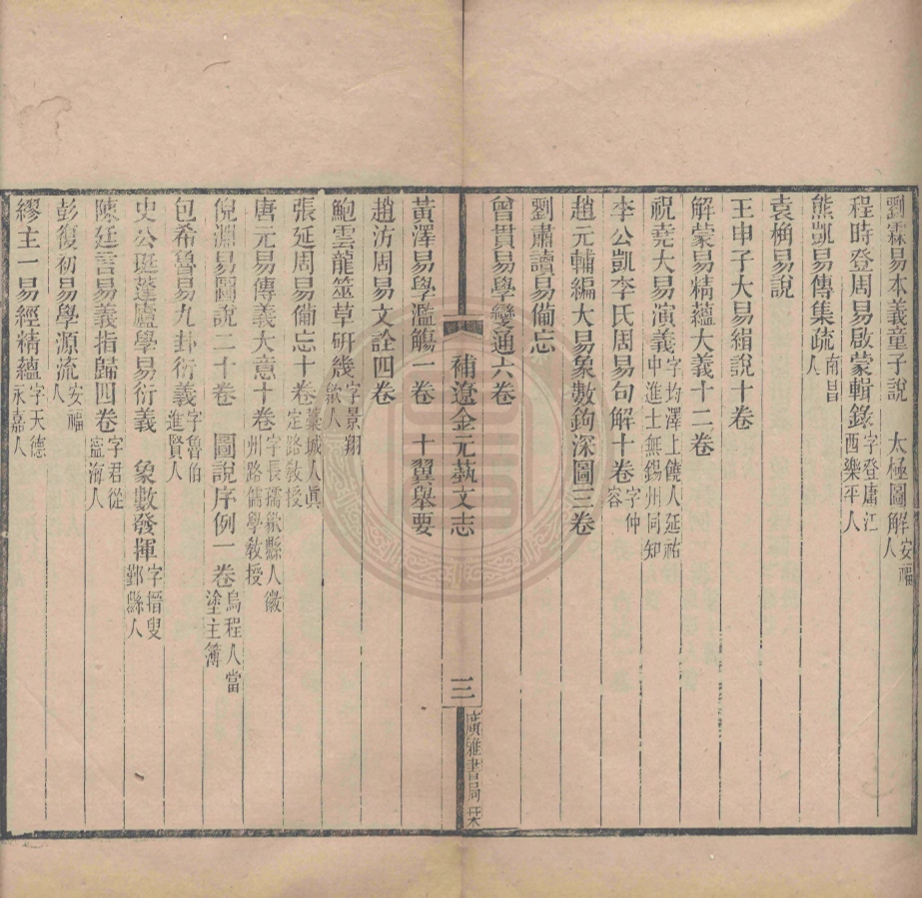 劉霖易本義童子說　太極圖解安福人
程時登周易啟蒙輯錄字登庸江西樂平人
熊凱易傳集疏南昌人
袁桷易說
王申子大易緝說十卷
解蒙易精蘊大義十二卷
祝堯大易演義字均澤上饒人延祐申進士無錫州同知
李公凱李氏周易句解十卷字仲容
趙元輔編大易象數鉤深圖三卷
劉肅讀易備忘
曾貫易學變通六卷
補遼金元藝文志
三
廣雅書局栞
黃澤易學濫觴一卷　十翼舉要
趙汸周易文詮四卷
鮑雲龍筮草研幾字景翔歙人
張延周易備忘十卷藁城人眞定路敎授
唐元易傳義大意十卷字長孺歙縣人徽州路儒學敎授
倪淵易圖說二十卷　圖說序例一卷烏程人當塗主簿
包希魯易九卦衍義字魯伯進賢人
史公珽蓬廬學易衍義　象數發揮字搢叟鄞縣人
陳廷言易義指歸四卷字君從寧海人
彭復初易學源流安福人
繆主一易經精蘊字天德永嘉人